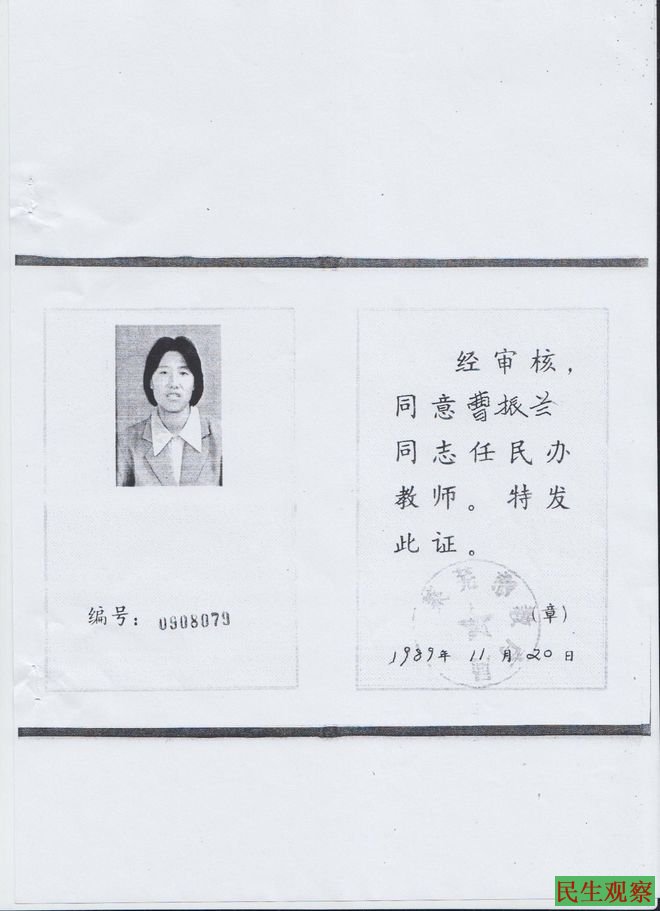 编号： 0908079
经审核，
同意曹振兰
同志任民办
教师。特发
此证。
（章）
1989年 11月 20日
民生观察